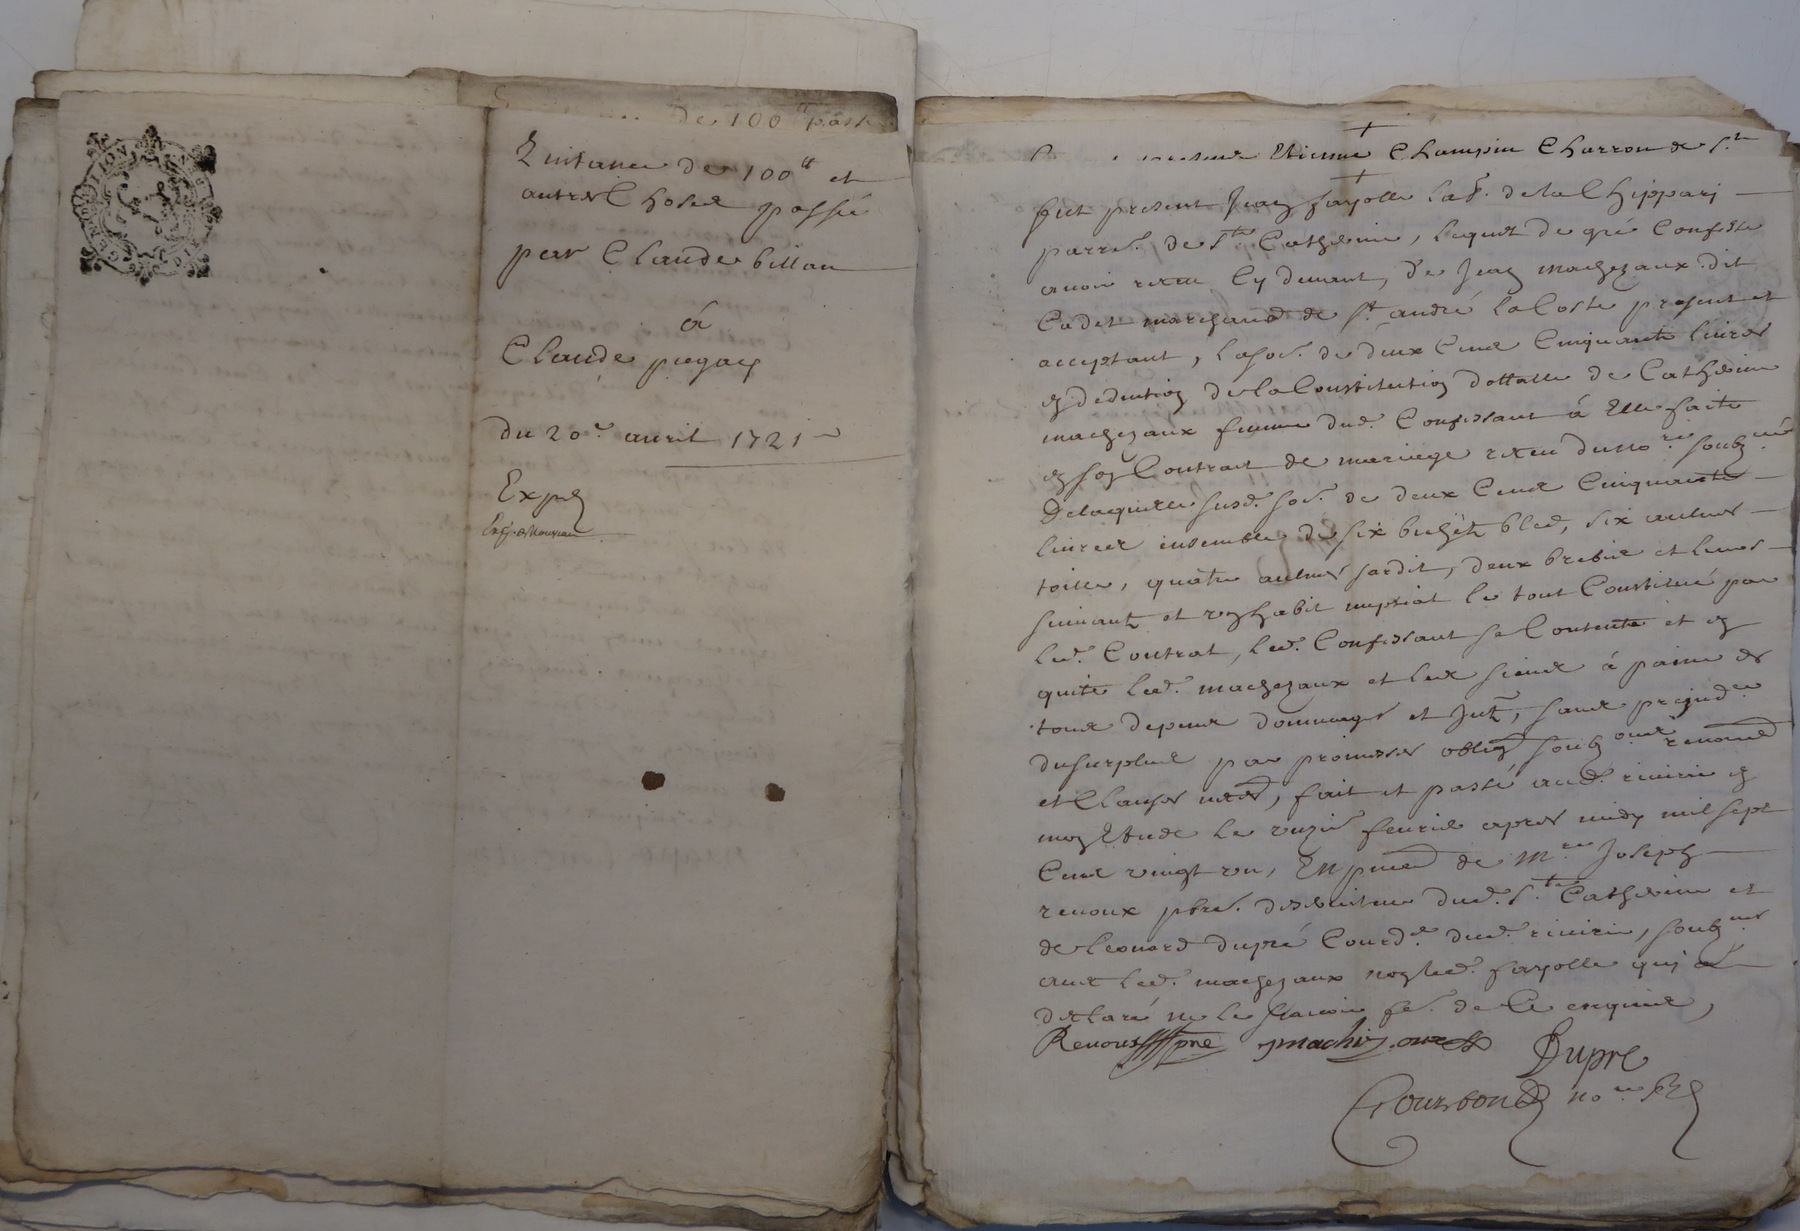 de 100ᵗᵗ passé
Quitance de 100ᵗᵗ et
autres Choses passé
par Claude billan
à
Claude pugay
du 20ᵉ. avril 1721
Expᵉ
Etienne Champin Charron de Sᵗᵉ
fut present Jean fayolle labʳ. de la Chippari
parrᵉ. de Sᵗᵉ Catherine, lequel de gré Confesse
avoir receu Cy devant, de Jean machezaux dit
Cadet marchand de Sᵗ andré la Coste present et
acceptant, la soᵉ. de deux Cens Cinquante livres
en deduction de la Constitution dottalle de Catherine
machezaux femme dudᵗ. Confessant à Elle faite
en son Contrat de mariage receu du noʳᵉ. soubzⁿᵉ
De laquelle susdᵉ. soᵉ. de deux Cens Cinquante
livres ensemble de six bichetz bled, six aulnes
toille, quatre aulnes sardit, deux brebis et leurs
suivantz et un habit nuptial le tout Constitué par
ledᵗ. Contrat, ledᵗ. Confessant se Contente et en
quite ledᵗ. machezaux et les siens à paine de
tous depens dommages et Jntz, sans prejudᶜᵉ
du surplus par promesses oblign soubzᵒⁿˢ renonon
et Clauses necesres, fait et passé audᵗ. riverie en
mon Etude le unziᵉ fevrier apres midy mil sept
Cens vingt un, En pnce de Mʳᵉ Joseph
renoux pbre. desserviteur dudᵗ. Sᵗᵉ Catherine et
de leonard dupré Courdʳ. dudᵗ. riverie, soubzⁿᵉˢ
avec ledᵗ. machezaux non ledᵗ. fayolle qui a
declaré ne le scavoir fᵉ. de Ce enquis,
Renoux pbre machezaux Dupre
Courbon noʳᵉ